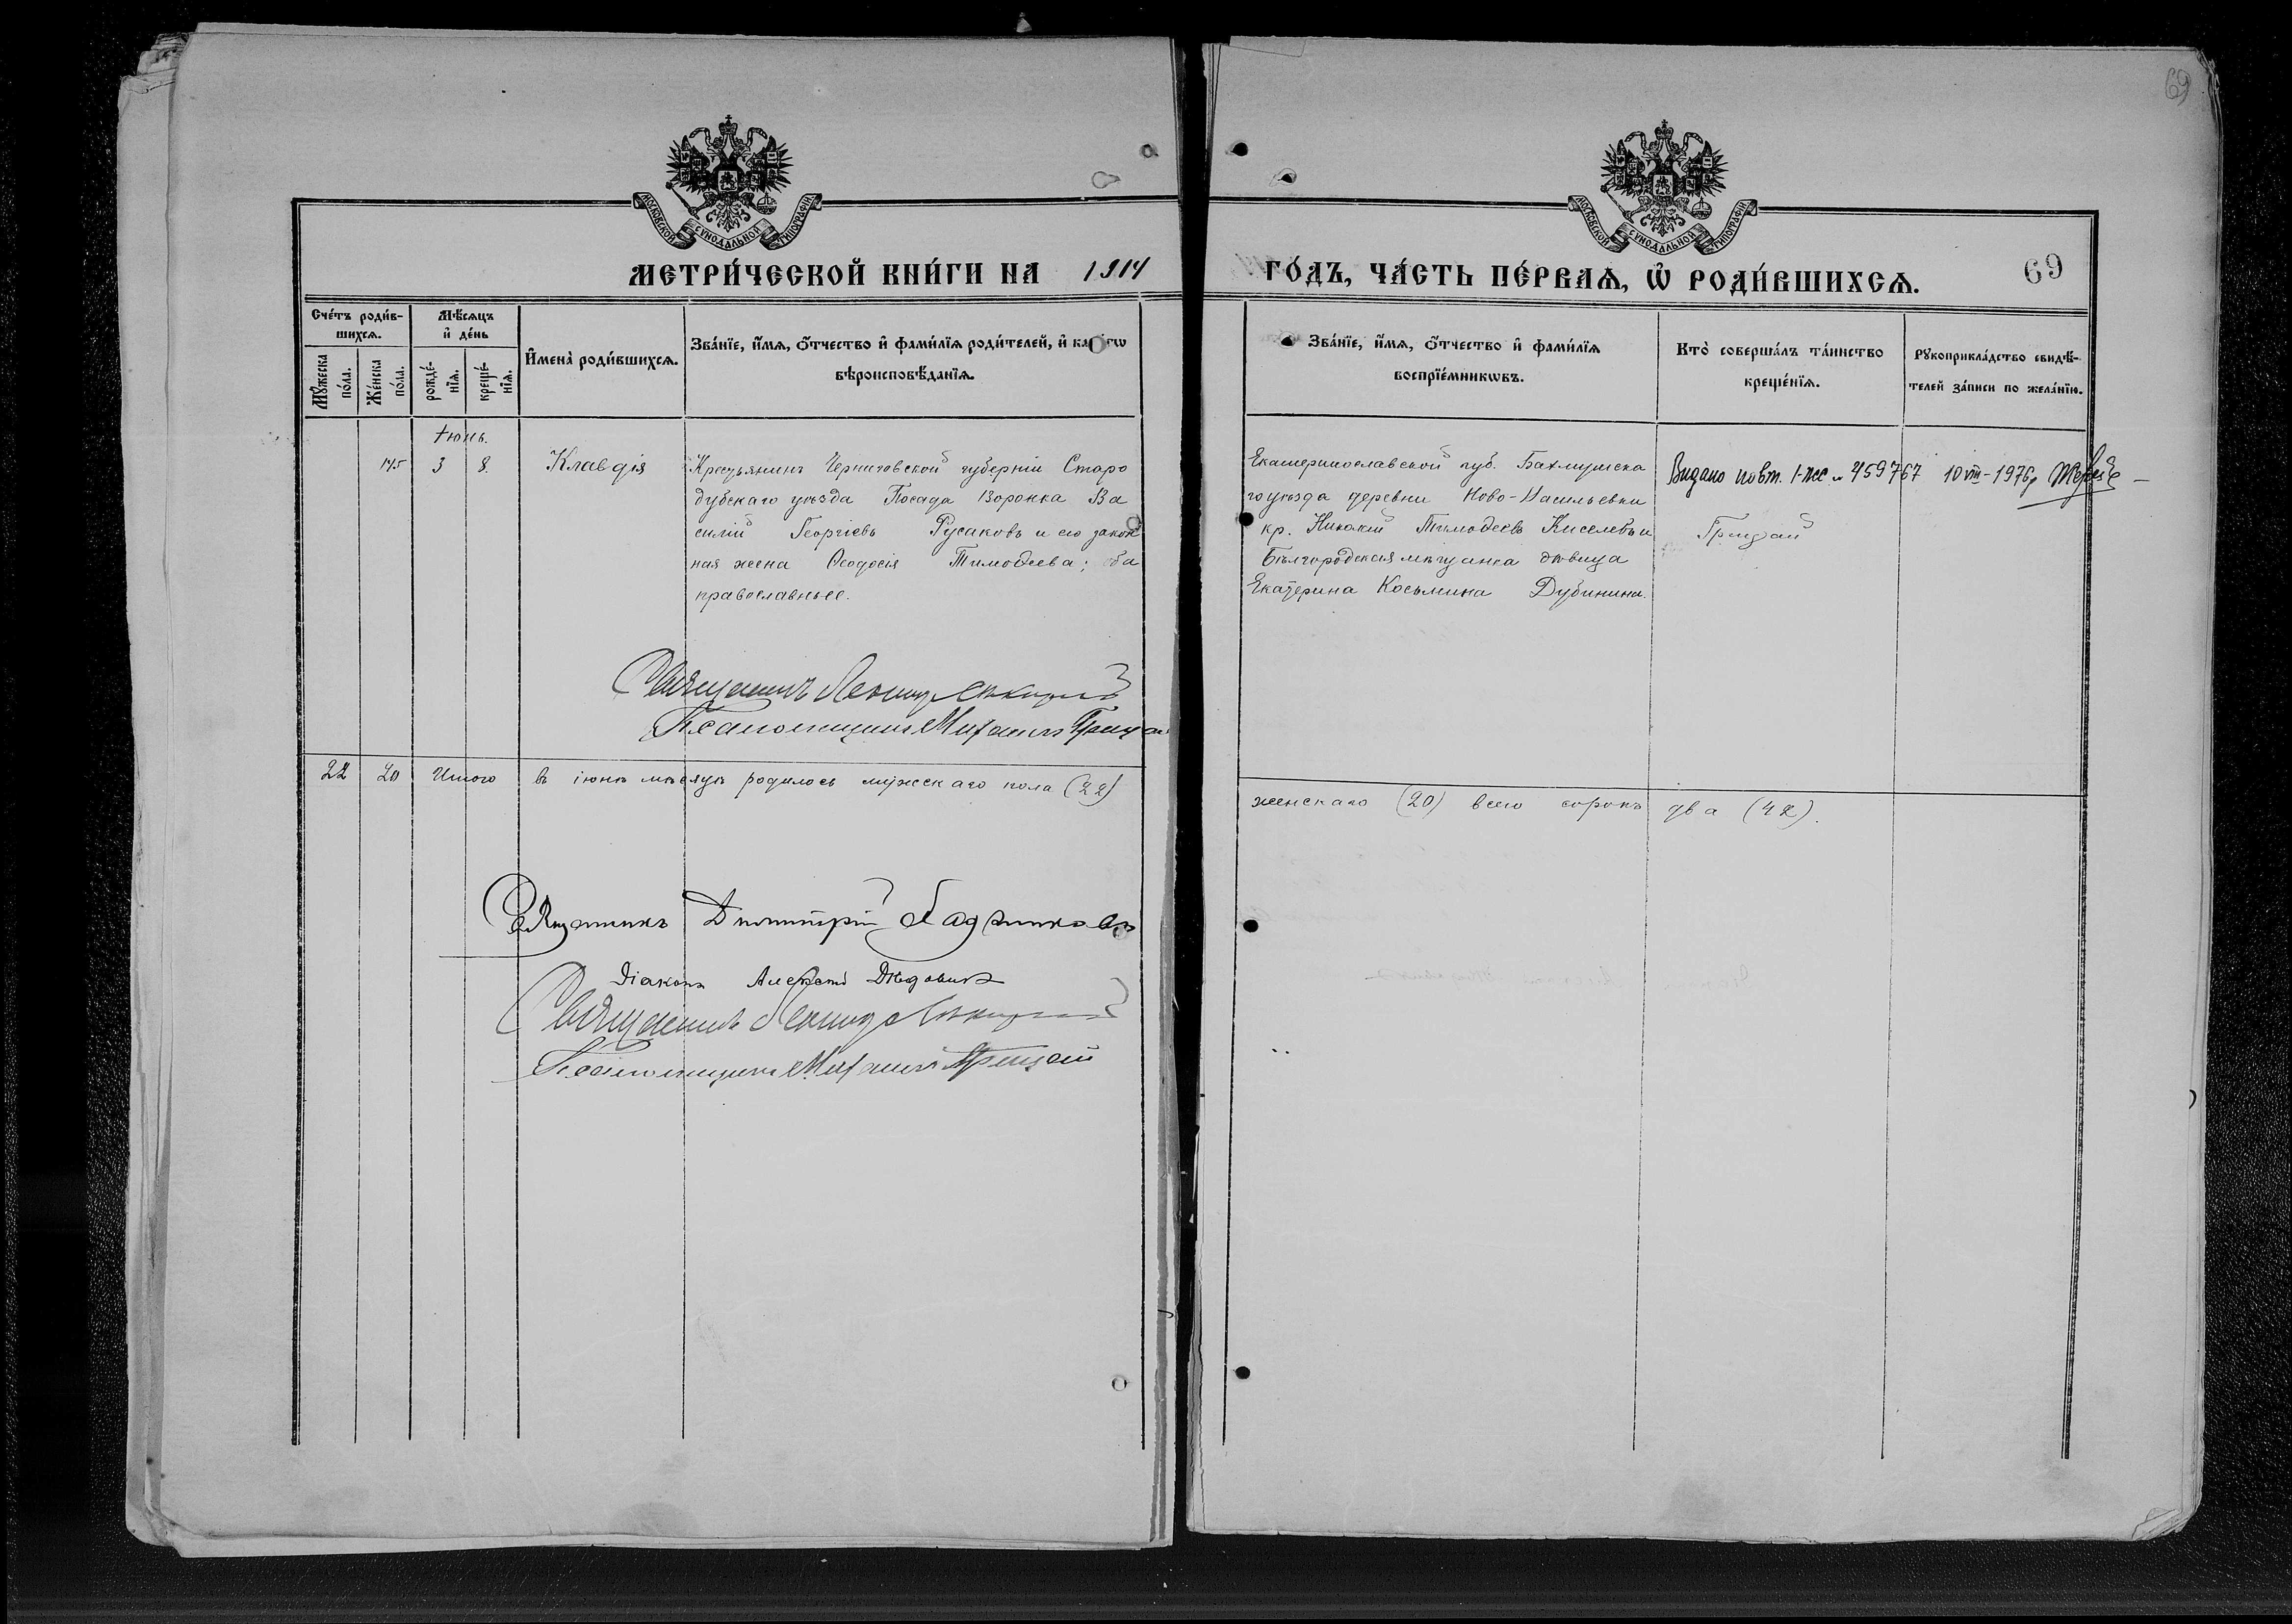 69
МОСКОВСКОЙ СѴНОДАЛЬНОЙ ТИПОГРАФІИ
МОСКОВСКОЙ СѴНОДАЛЬНОЙ ТИПОГРАФІИ
МЕТРИ́ЧЕСКОЙ КНИ́ГИ НА 1914
ГО́ДЪ, ЧА́СТЬ ПЕ́РВАѦ, Ѽ РОДИ́ВШИХСѦ.
69
Сче́тъ роди́в-
шихсѧ.
Мꙋ́жеска
по́ла.
Же́нска
по́ла.
Мѣ́сѧцъ
и҆ де́нь
рожде́-
нїѧ.
креще́-
нїѧ.
И҆мена̀ роди́вшихсѧ.
Зва́нїе, и҆́мѧ, о҆́тчество и҆ фами́лїѧ роди́телей, и҆ ка гѡ
вѣроисповѣ́данїѧ.
Зва́нїе, и҆́мѧ, о҆́тчество и҆ фами́лїѧ
воспрїе́мникѡвъ.
Кто̀ соверша́лъ та́инство
креще́нїѧ.
Рꙋкоприкла́дство свидѣ́-
телей за́писи по жела́нїю.
Іюнь.
145 3 8. Клавдія
Крестьянинъ Черниговской губерніи Старо
дубскаго уѣзда Посада Воронка Ва
силій Георгіевъ Русаковъ и его закон
ная жена Ѳеодосія Тимоѳеева; оба
православные.
Екатеринославской губ. Бахмутска
го уѣзда деревни Ново-Васильевки
кр. Николай Тимоѳеевъ Киселевъ и
Бѣлгородская мѣщанка дѣвица
Екатерина Косьмина Дубинина.
Видано повт. І-ЖС № 459767 10 VIII-1976р
Грицай
Священникъ Леонид
Псаломщикъ Михаилъ Грицай
22 20 Итого въ іюнѣ мѣсяцѣ родилось мужескаго пола (22)
женскаго (20) всего сорокъ два (42).
Священникъ Димитрій
Діаконъ Алексѣй Дѣдовичъ
Священникъ Леонид
Псаломщикъ Михаилъ Грицай